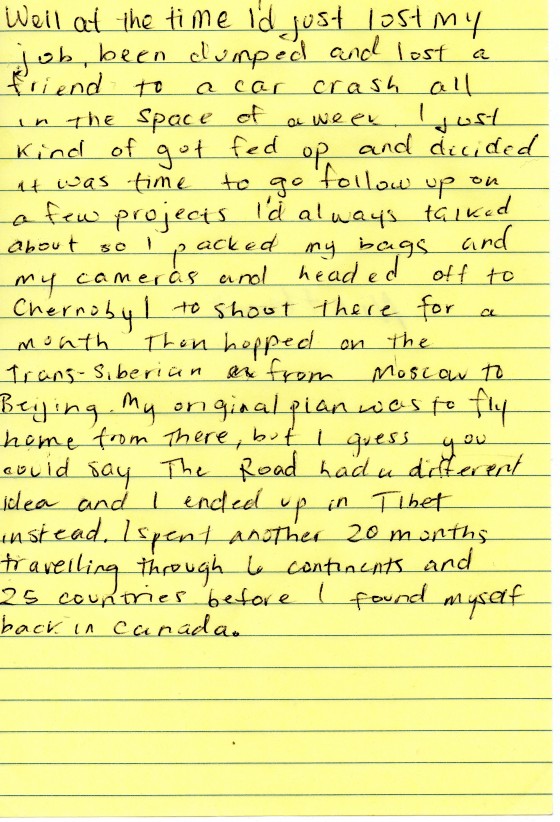 Well at the time I'd just lost my
job, been dumped and lost a
friend to a car crash all
in the space of a week. I just
kind of got fed up and decided
it was time to go follow up on
a few projects I'd always talked
about so I packed my bags and
my cameras and headed off to
Chernobyl to shoot there for a
month Then hopped on the
Trans-Siberian from Moscow to
Beijing. My original plan was to fly
home from there, but I guess you
could say The Road had a different
idea and I ended up in Tibet
instead. I spent another 20 months
travelling through 6 continents and
25 countries before I found myself
back in Canada.